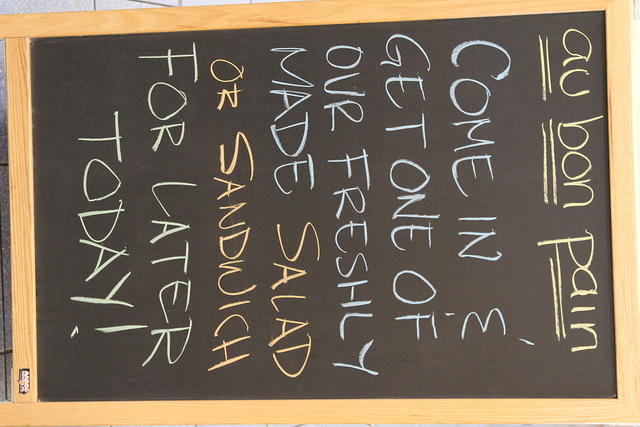 au bon pain
COME IN &
GET ONE OF
OUR FRESHLY
MADE SALAD
OR SANDWICH
FOR LATER
TODAY!